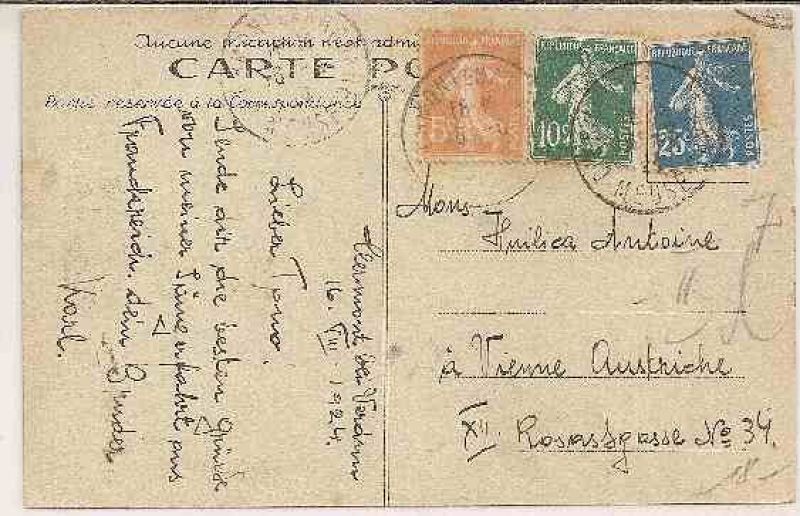 Aucune inscription n'est admi
CARTE PO
Partie réservée à la Correspondance
Clermont bei Verdun
16. VIII. 1924.
Lieber Tono.
Sende dir die besten Grüsse
von meiner Spazierfahrt aus
Frankreich. dein Bruder
Karl.
REPUBLIQUE FRANÇAISE
5c
REPUBLIQUE FRANÇAISE
10c
POSTES
REPUBLIQUE FRANÇAISE
25c
POSTES
MEUSE
Mons. Antoine
à Vienne Austriche
XII. Rosasgasse No 34.